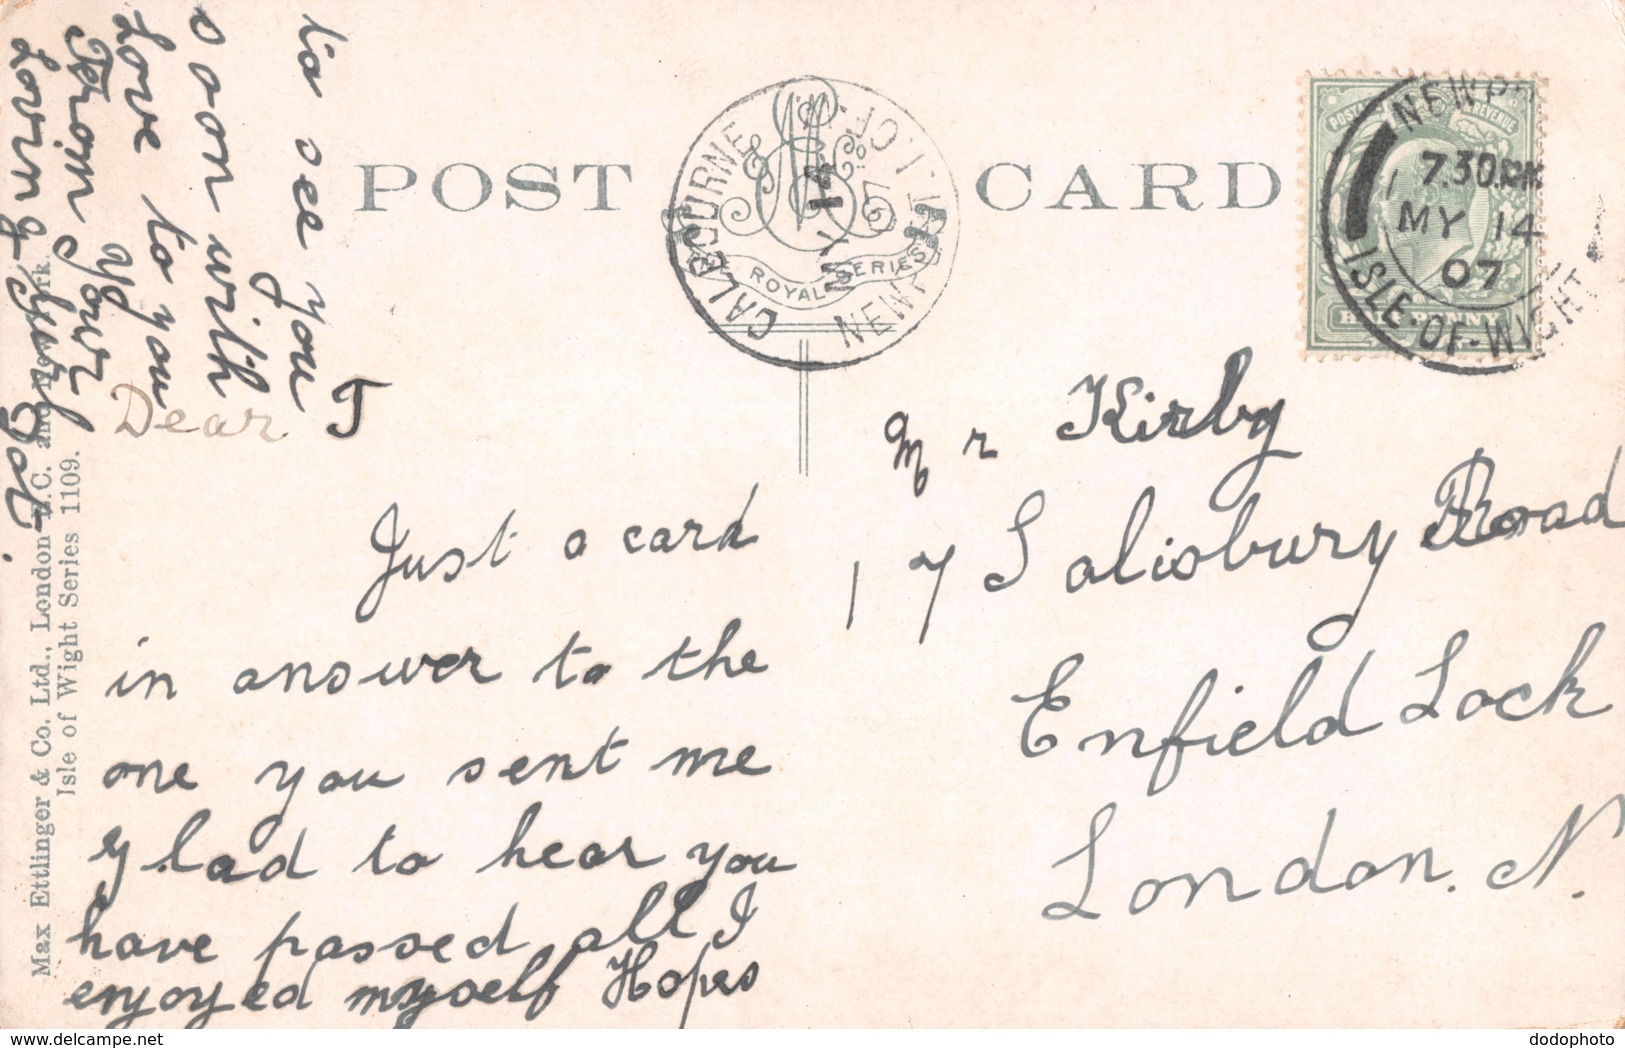 POST CARD
THE ROYAL SERIES
CALBOURNE
MY 14
NEWPORT. I. OF. W.
POSTAGE REVENUE
HALF PENNY
7.30.PM
MY 14
07
ISLE·OF·WIGHT
Dear J
Just a card
in answer to the
one you sent me
glad to hear you
have passed all I
enjoyed myself Hopes
to see you
soon with
Love to you
From your
Loving
Mr Kirby
17 Salisbury Road
Enfield Lock
London. N.
Max Ettlinger & Co. Ltd., London E.C. and New York.
Isle of Wight Series 1109.
delcampe.net
dodophoto